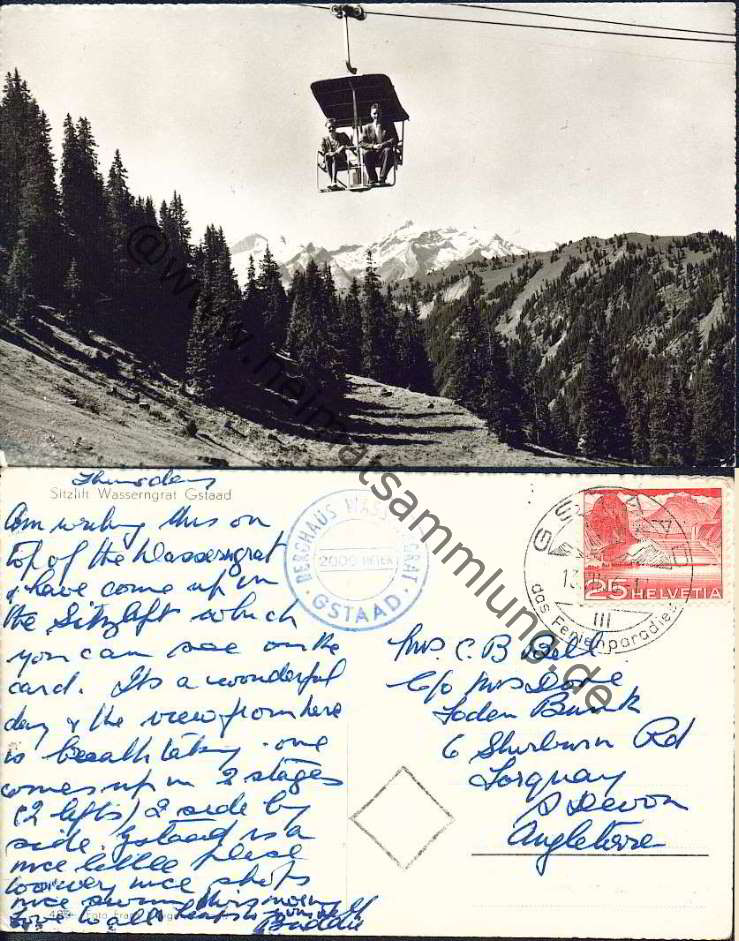 @www.heimatsammlung.de
Thursday
Sitzlift Wasserngrat Gstaad
Am writing this on
top of the Wasserngrat
& have come up in
the Sitzlift which
you can see on the
card. Its a wonderful
day & the view from here
is breathtaking. one
comes up in 2 stages
(2 lifts) 2 side by
side. Gstaad is a
nice little place
nice shops
nice
love to all
Buddie
BERGHAUS WASSERNGRAT
GSTAAD
GSTAAD
13
das Ferienparadies
25 HELVETIA
Mrs. C. B. Bell
C/o Mrs Dove
6 Sherburn Rd
Torquay
S Devon
Angleterre